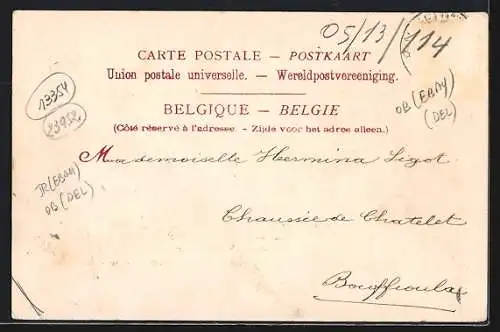 05/13/114
CARTE POSTALE — POSTKAART
Union postale universelle. — Wereldpostvereeniging.
13354
23958
OB (EBAY)
(DEL)
BELGIQUE — BELGIE
(Côté réservé à l'adresse. - Zijde voor het adres alleen.)
Mademoiselle Hermina Ligot
JR (EBAY)
OB (DEL)
Chaussée de Chatelet
Bouffioulx